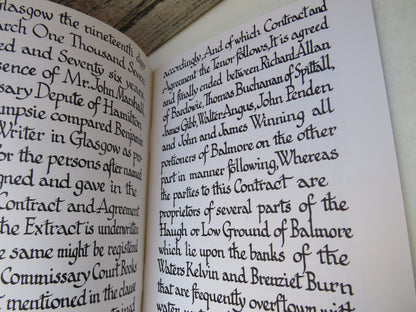 Glasgow the nineteenth day
arch One Thousand Seven
ed and Seventy six years
esence of Mr. John Marshall
issary Depute of Hamilton
mpsie compared Benjamin
Writer in Glasgow as pro
for the persons after named
gned and gave in the
Contract and Agreement
the Extract is underwritten
e same might be registered
Commissary Court Books
t mentioned in the clause
contained
accordingly. And of which Contract and
Agreement the Tenor follows, It is agreed
and finally ended between Richard Allan
of Bardowie, Thomas Buchanan of Spittall,
James Gibb, Walter Angus, John Penden
and John and James Winning all
portioners of Balmore on the other
part in manner following, Whereas
the parties to this Contract are
proprietors of several parts of the
Haugh or Low Ground of Balmore
which lie upon the banks of the
Waters Kelvin and Brenziet Burn
that are frequently overflown with